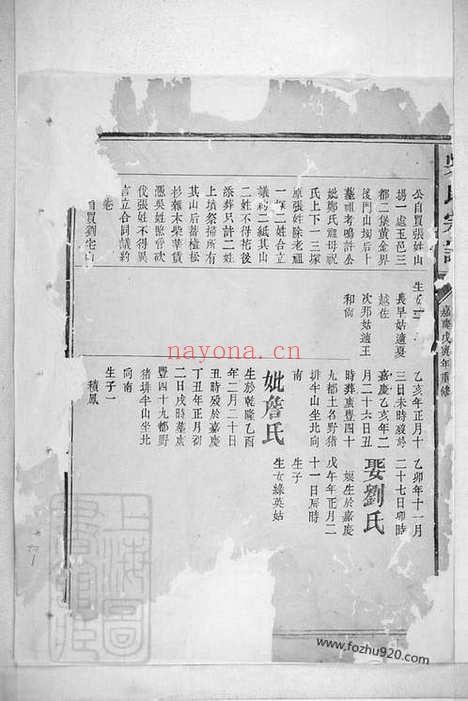 吳氏宗譜
嘉慶戊寅年重修
公自買張姓山
場一處玉邑三
都二堡黃金界
後門山塝后十
墓祖考鳴許公
妣鄭氏迎母祝
氏上下一三塚
原張姓除老祖
一塚二姓合立
議約二紙其山
二姓不得花ворот
添葬只計二姓
上墳祭掃所有
其山后蓄植松
杉雜木柴薪賃
憑吳姓照管砍
伐張姓不得異
言立合同議約
卷
自買劉宅山
生女
長早姑適夏
越佐
次邦姑適王
和尚
乙亥年正月十
三日未時歿於
嘉慶乙亥年二
月二十六日丑
時葬廣豐四十
九都土名野豬
排牛山坐北向
南
妣詹氏
生於乾隆乙酉
年二月二十日
丑時歿於嘉慶
丁丑年正月初
二日戌時墓廣
豐四十九都野
豬排牛山坐北
向南
生子一
積鳳
乙卯年十一月
二十七日卯時
娶劉氏
媛生於嘉慶
戊午年正月二
十一日辰時
生子
生女綠英姑
nayona.cn
www.fozhu920.com